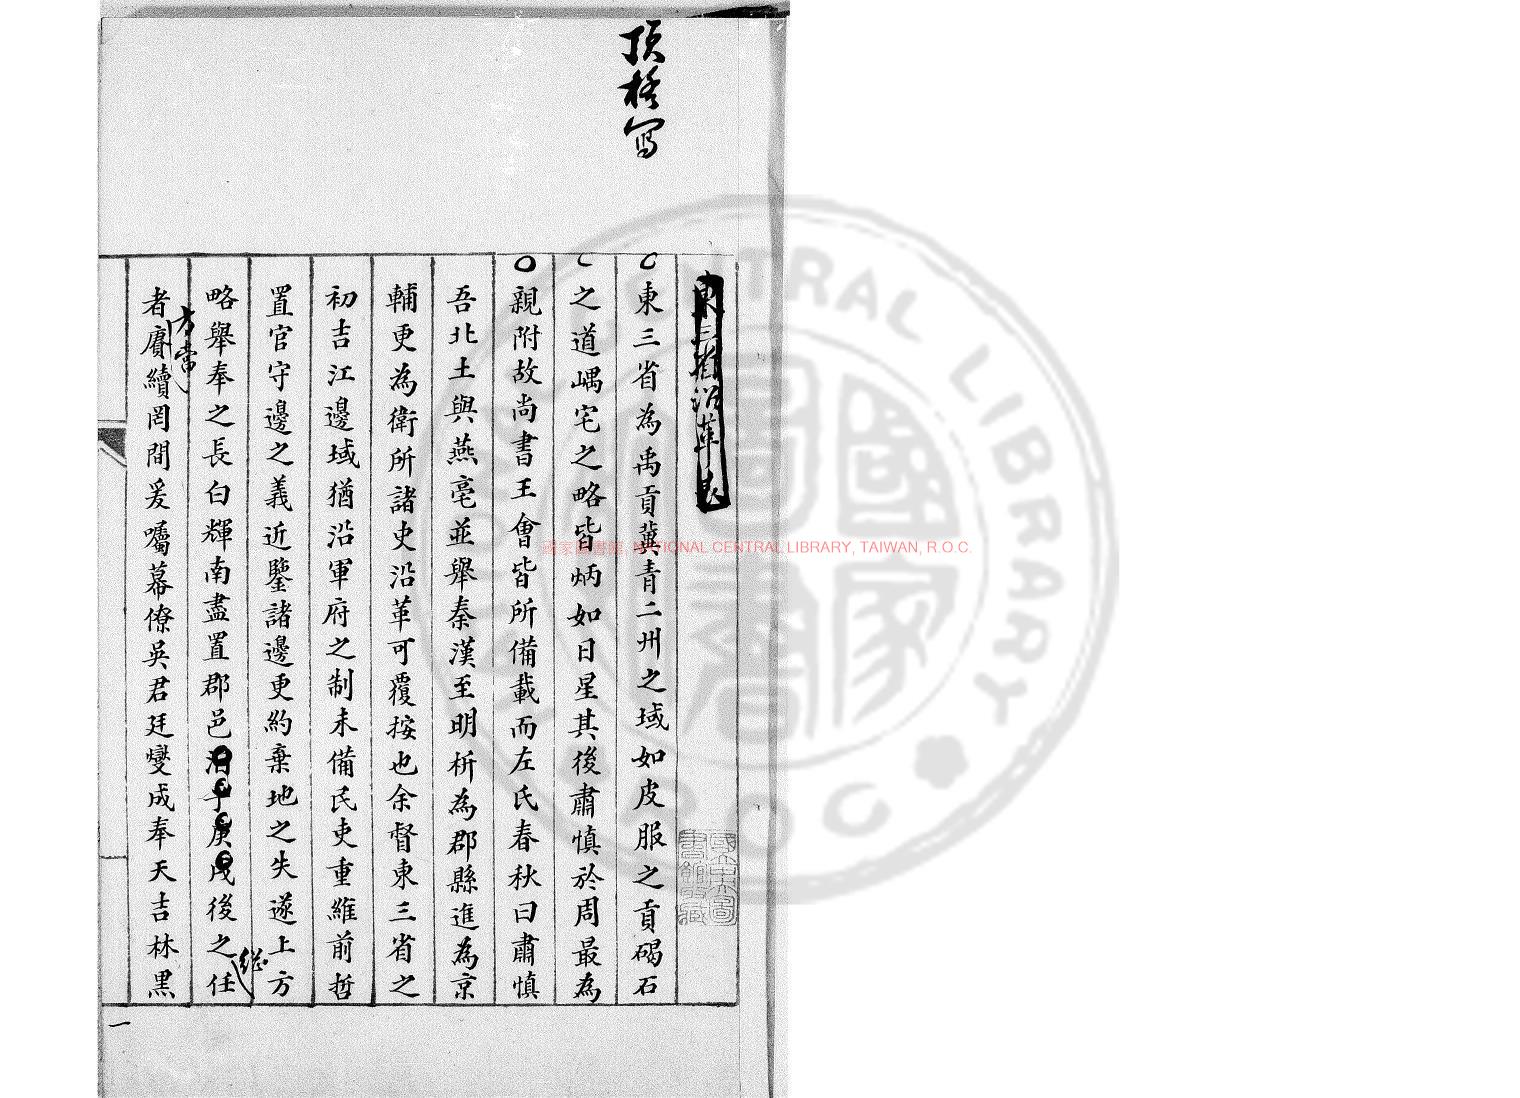 頂格寫
東三省沿革表
東三省為禹貢冀青二州之域如皮服之貢碣石
之道嵎宅之略皆炳如日星其後肅慎於周最為
親附故尚書王會皆所備載而左氏春秋曰肅慎
吾北土與燕亳並舉秦漢至明析為郡縣進為京
輔更為衛所諸史沿革可覆按也余督東三省之
初吉江邊域猶沿軍府之制未備民吏重維前哲
置官守邊之義近鑒諸邊更約棄地之失遂上方
略舉奉之長白輝南盡置郡邑庚戌後之繼任
者方賡續罔間爰囑幕僚吳君廷燮成奉天吉林黑
一
國家圖書館, NATIONAL CENTRAL LIBRARY, TAIWAN, R.O.C.
NATIONAL CENTRAL LIBRARY R.O.C.
國家圖書
國立中央圖書館收藏